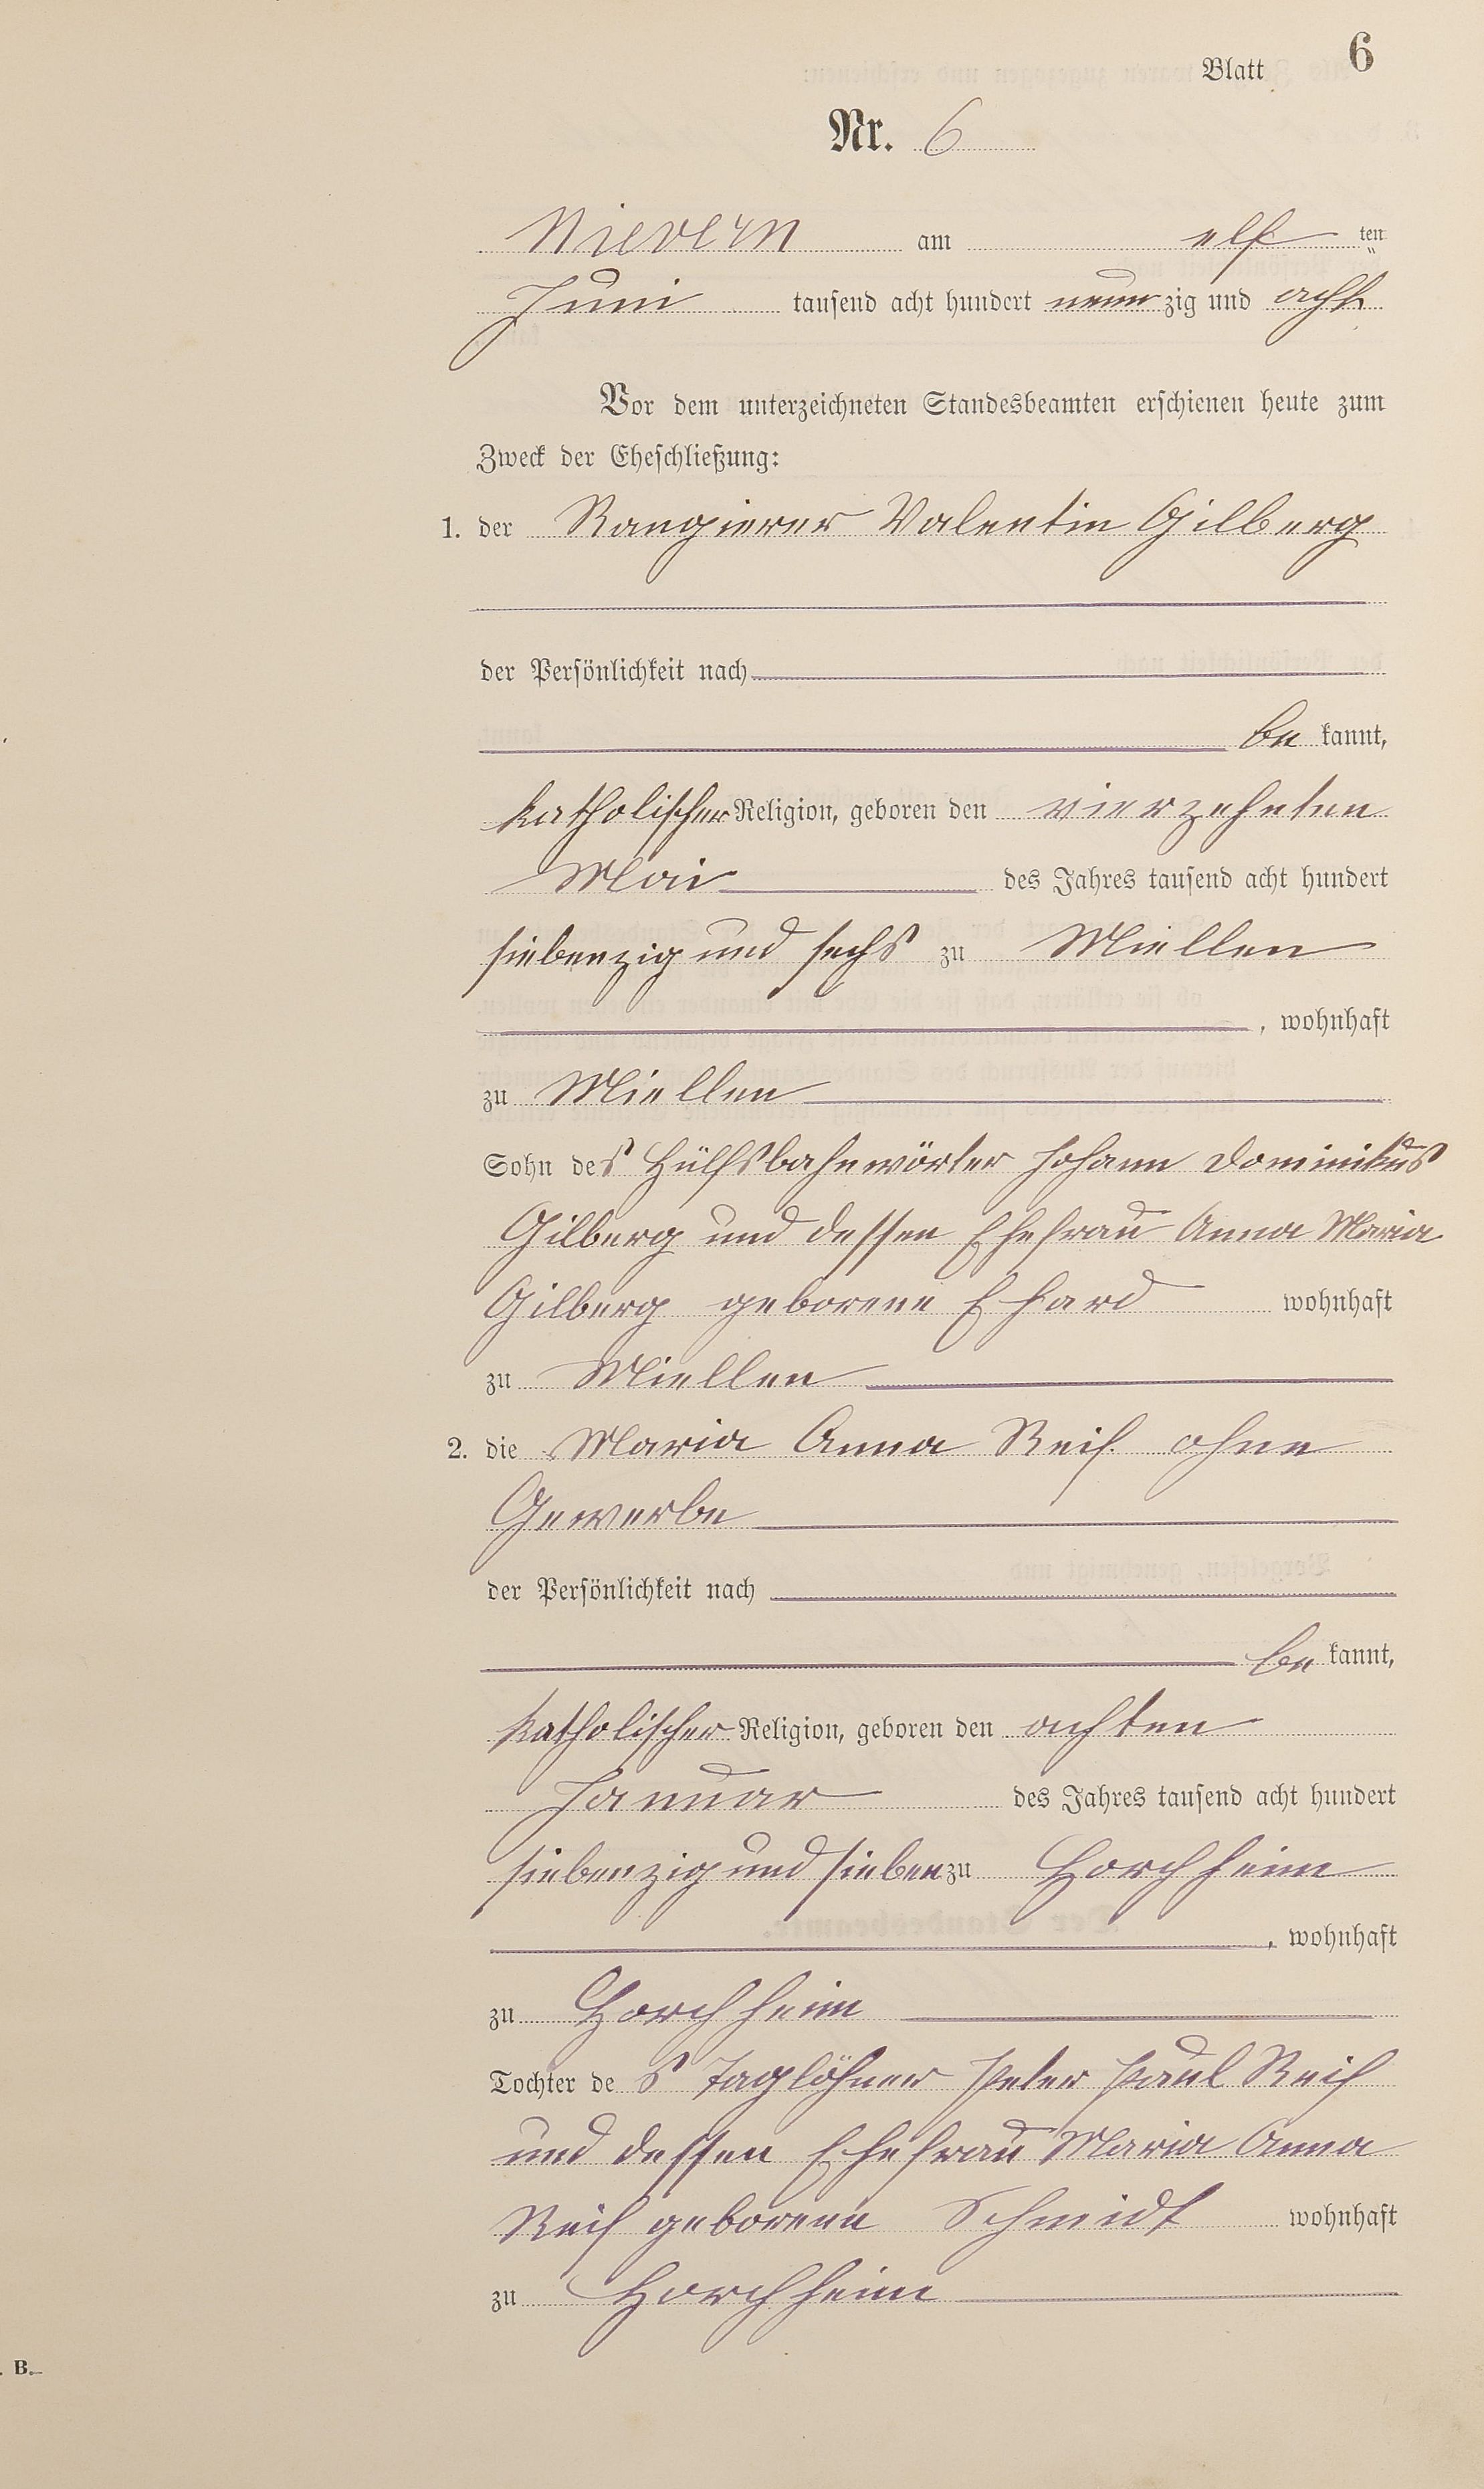 Blatt 6
Nr. 6
Nievern am elf ten
Juni tausend acht hundert neun zig und acht
Vor dem unterzeichneten Standesbeamten erschienen heute zum
Zweck der Eheschließung:
1. der Rangierer Valentin Gilberg
der Persönlichkeit nach
be kannt,
katholischer Religion, geboren den vierzehnten
Mai des Jahres tausend acht hundert
siebenzig und sechs zu Miellen
, wohnhaft
zu Miellen
Sohn des Hülfsbahnwärter Johann Dominikus
Gilberg und dessen Ehefrau Anna Maria
Gilberg geborene Ehard wohnhaft
zu Miellen
2. die Maria Anna Reif ohne
Gewerbe
der Persönlichkeit nach
be kannt,
katholischer Religion, geboren den achten
Januar des Jahres tausend acht hundert
siebenzig und sieben zu Horchheim
, wohnhaft
zu Horchheim
Tochter des Taglöhner Peter Paul Reif
und dessen Ehefrau Maria Anna
Reif geborene Schmidt wohnhaft
zu Horchheim
. B.